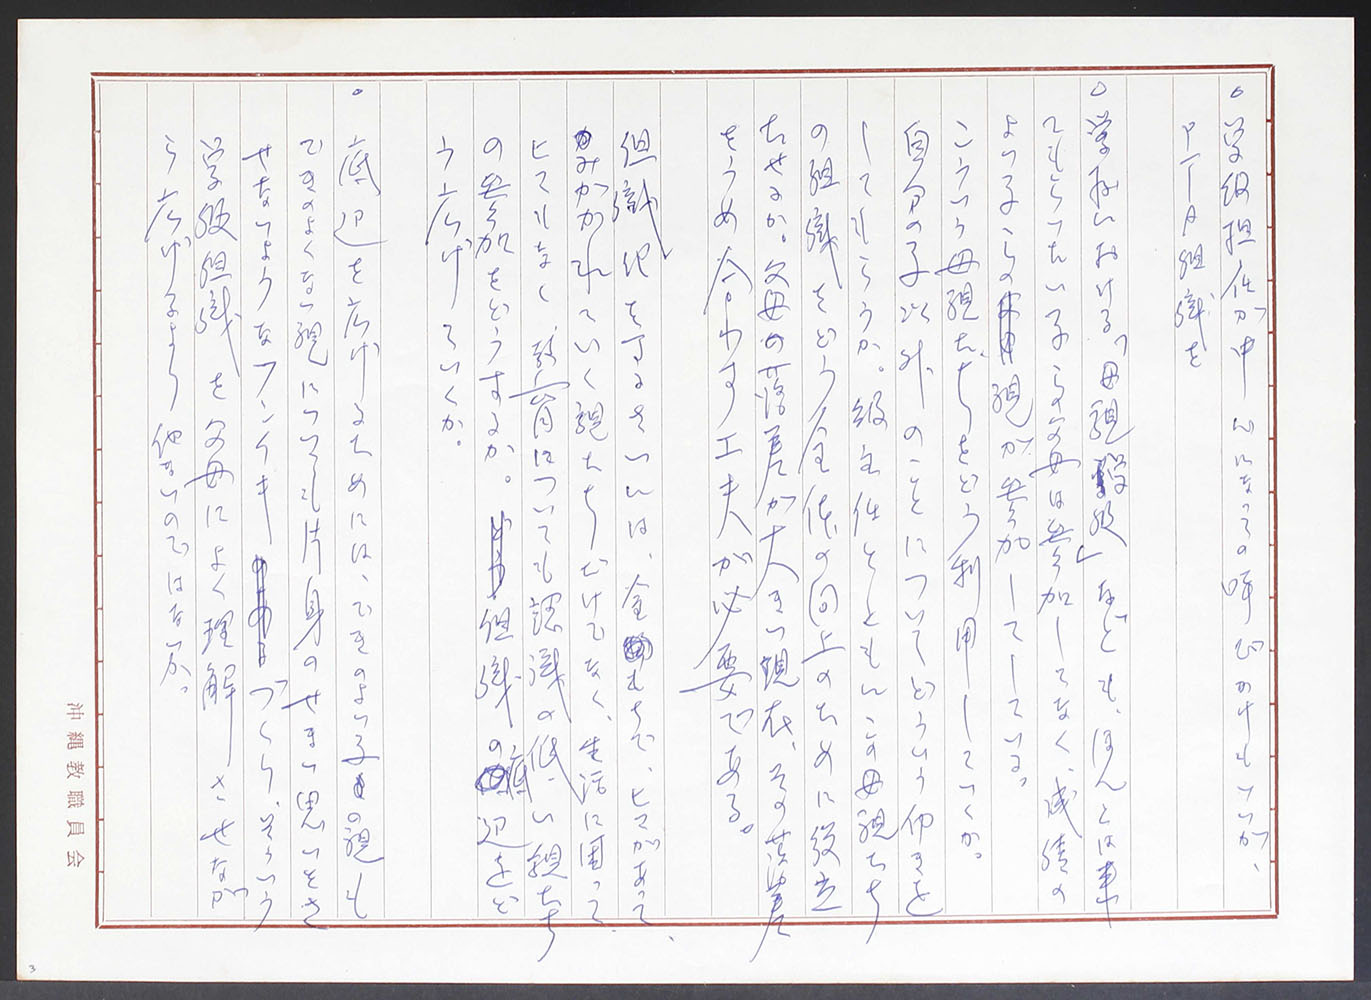 ○ 学級担任が中心になっての呼びかけもいいが、
PTA組織を
○ 学校における「母親学級」なども、ほんとは来
てもらいたい子らの父母は参加してなく、成績の
よい子らの親が参加している。
こういう母親たちをどう利用していくか。
自分の子以外のことについてどういう働きを
してもらうか。級主任とともにこの母親たち
の組織をどう全体の向上のために役立
たせるか。父母の落差が大きい現在、その落差
をうめ合わす工夫が必要である。
組織化をするさいには、金もちで、ヒマがあって、
かみかかれていく親たちだけでなく、生活に困って、
ヒマもなく、教育についても認識の低い親たち
の参加をどうするか。組織の底辺をど
う広げていくか。
○ 底辺を広げるためには、できのよい子の親も
できのよくない親にっいても片身のせまい思いをさ
せないようなフンイキづくり、そういう
学級組織を父母によく理解させなが
ら広げるより他ないのではないか。
沖縄教職員会
3